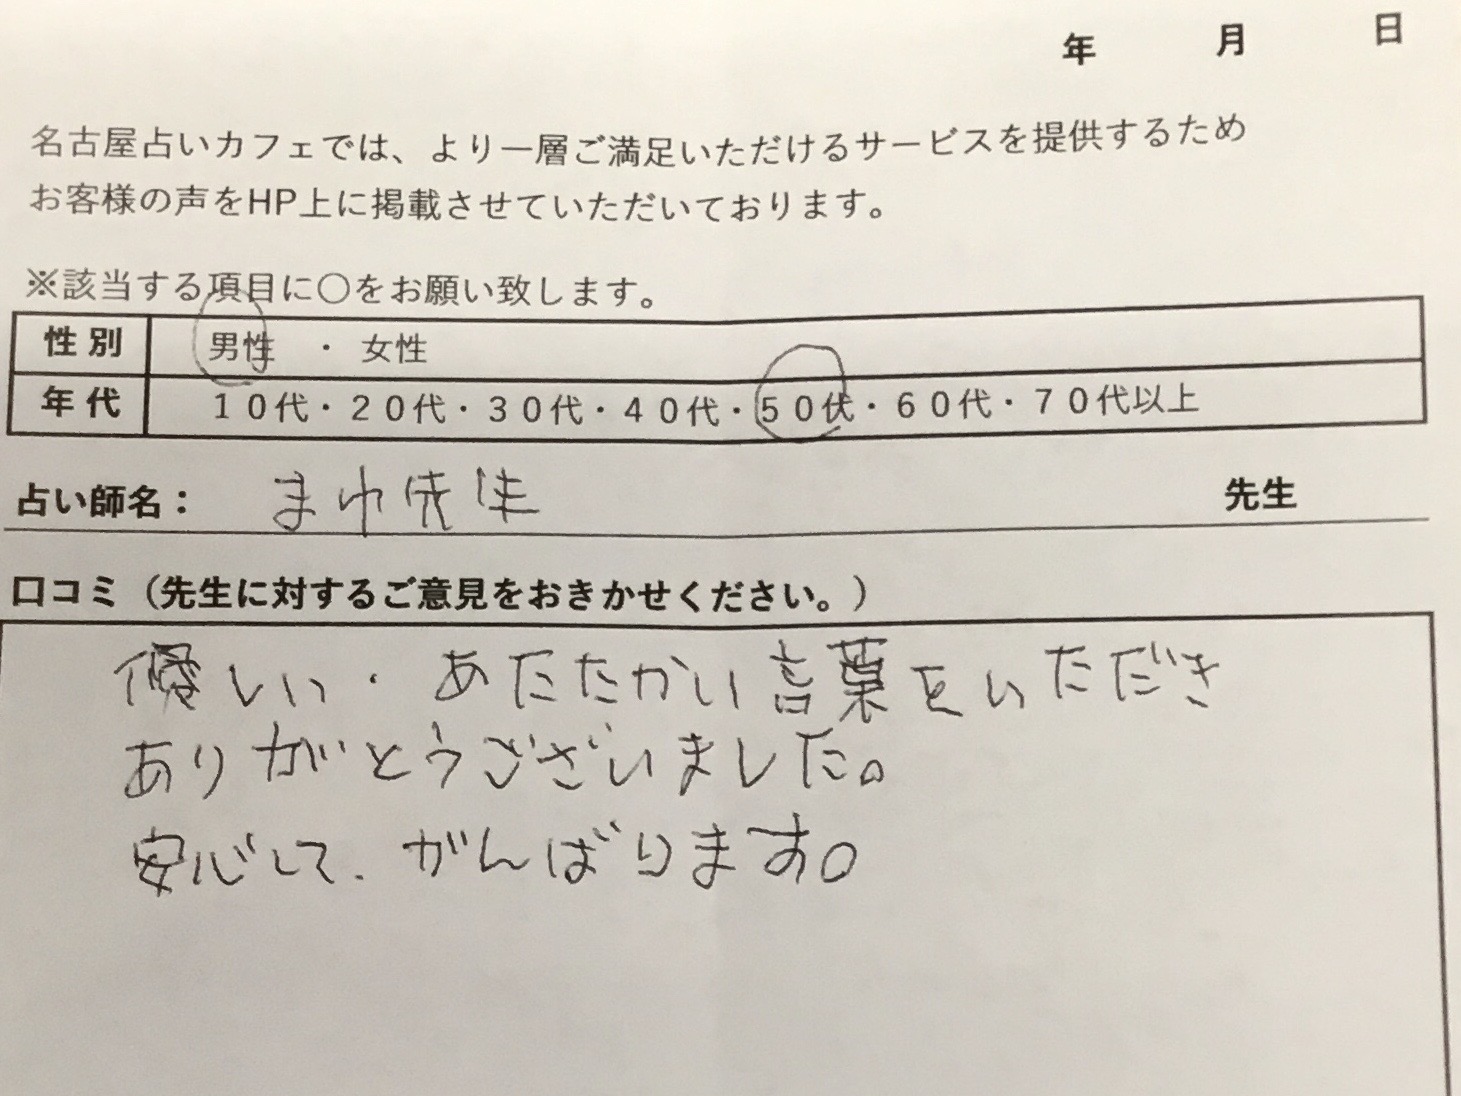 年 月 日
名古屋占いカフェでは、より一層ご満足いただけるサービスを提供するため
お客様の声をHP上に掲載させていただいております。
※該当する項目に〇をお願い致します。
性別 男性 ・ 女性
年代 １０代・２０代・３０代・４０代・５０代・６０代・７０代以上
占い師名： 先生 先生
口コミ（先生に対するご意見をおきかせください。）
優しい・あたたかい言葉をいただき
ありがとうございました。
安心して、がんばります。